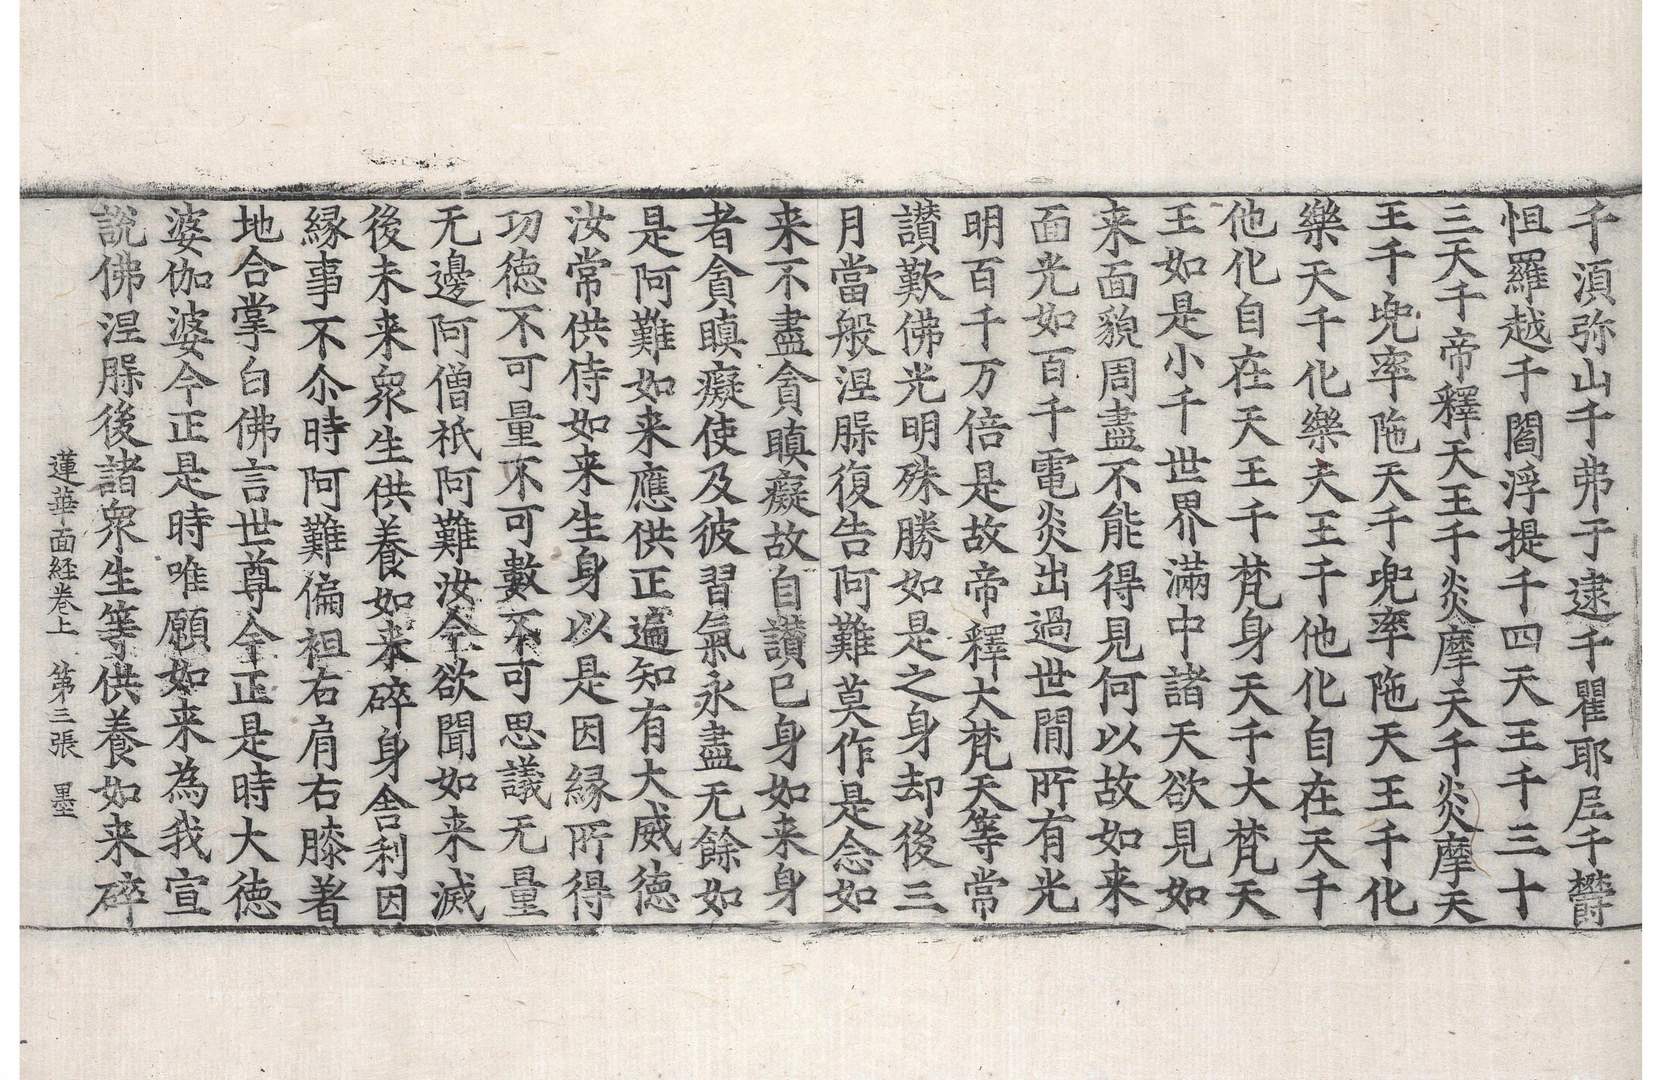 千湏弥山千弗于逮千瞿耶尼千欝
怛羅越千閻浮提千四天王千三十
三天千帝釋天王千炎摩天千炎摩天
王千兜率陁天千兜率陁天王千化
樂天千化樂天王千他化自在天千
他化自在天王千梵身天千大梵天
王如是小千世界滿中諸天欲見如
来面貌周盡不能得見何以故如来
面光如百千電炎出過世間所有光
明百千万倍是故帝釋大梵天等常
讃歎佛光明殊勝如是之身却後三
月當般涅脲復告阿難莫作是念如
来不盡貪瞋癡故自讃已身如来身
者貪瞋癡使及彼習氣永盡无餘如
是阿難如来應供正遍知有大威徳
汝常供侍如来生身以是因縁所得
功徳不可量不可數不可思議无量
无邊阿僧祇阿難汝今欲聞如来滅
後未来衆生供養如来碎身舍利因
縁事不尒時阿難偏袒右肩右膝著
地合掌白佛言世尊今正是時大徳
婆伽婆今正是時唯願如来為我宣
說佛涅脲後諸衆生等供養如来碎
蓮華面経卷上　第三張　墨